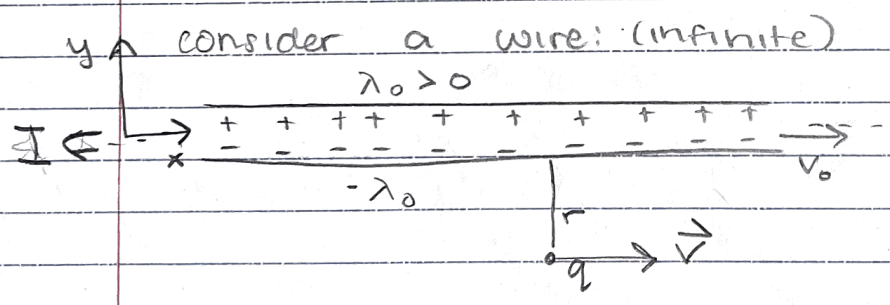 y consider a wire: (infinite)
λ₀ > 0
I ← x + + + + + + + + + +
- - - - - - - - - - v₀
-λ₀
r
q v⃗